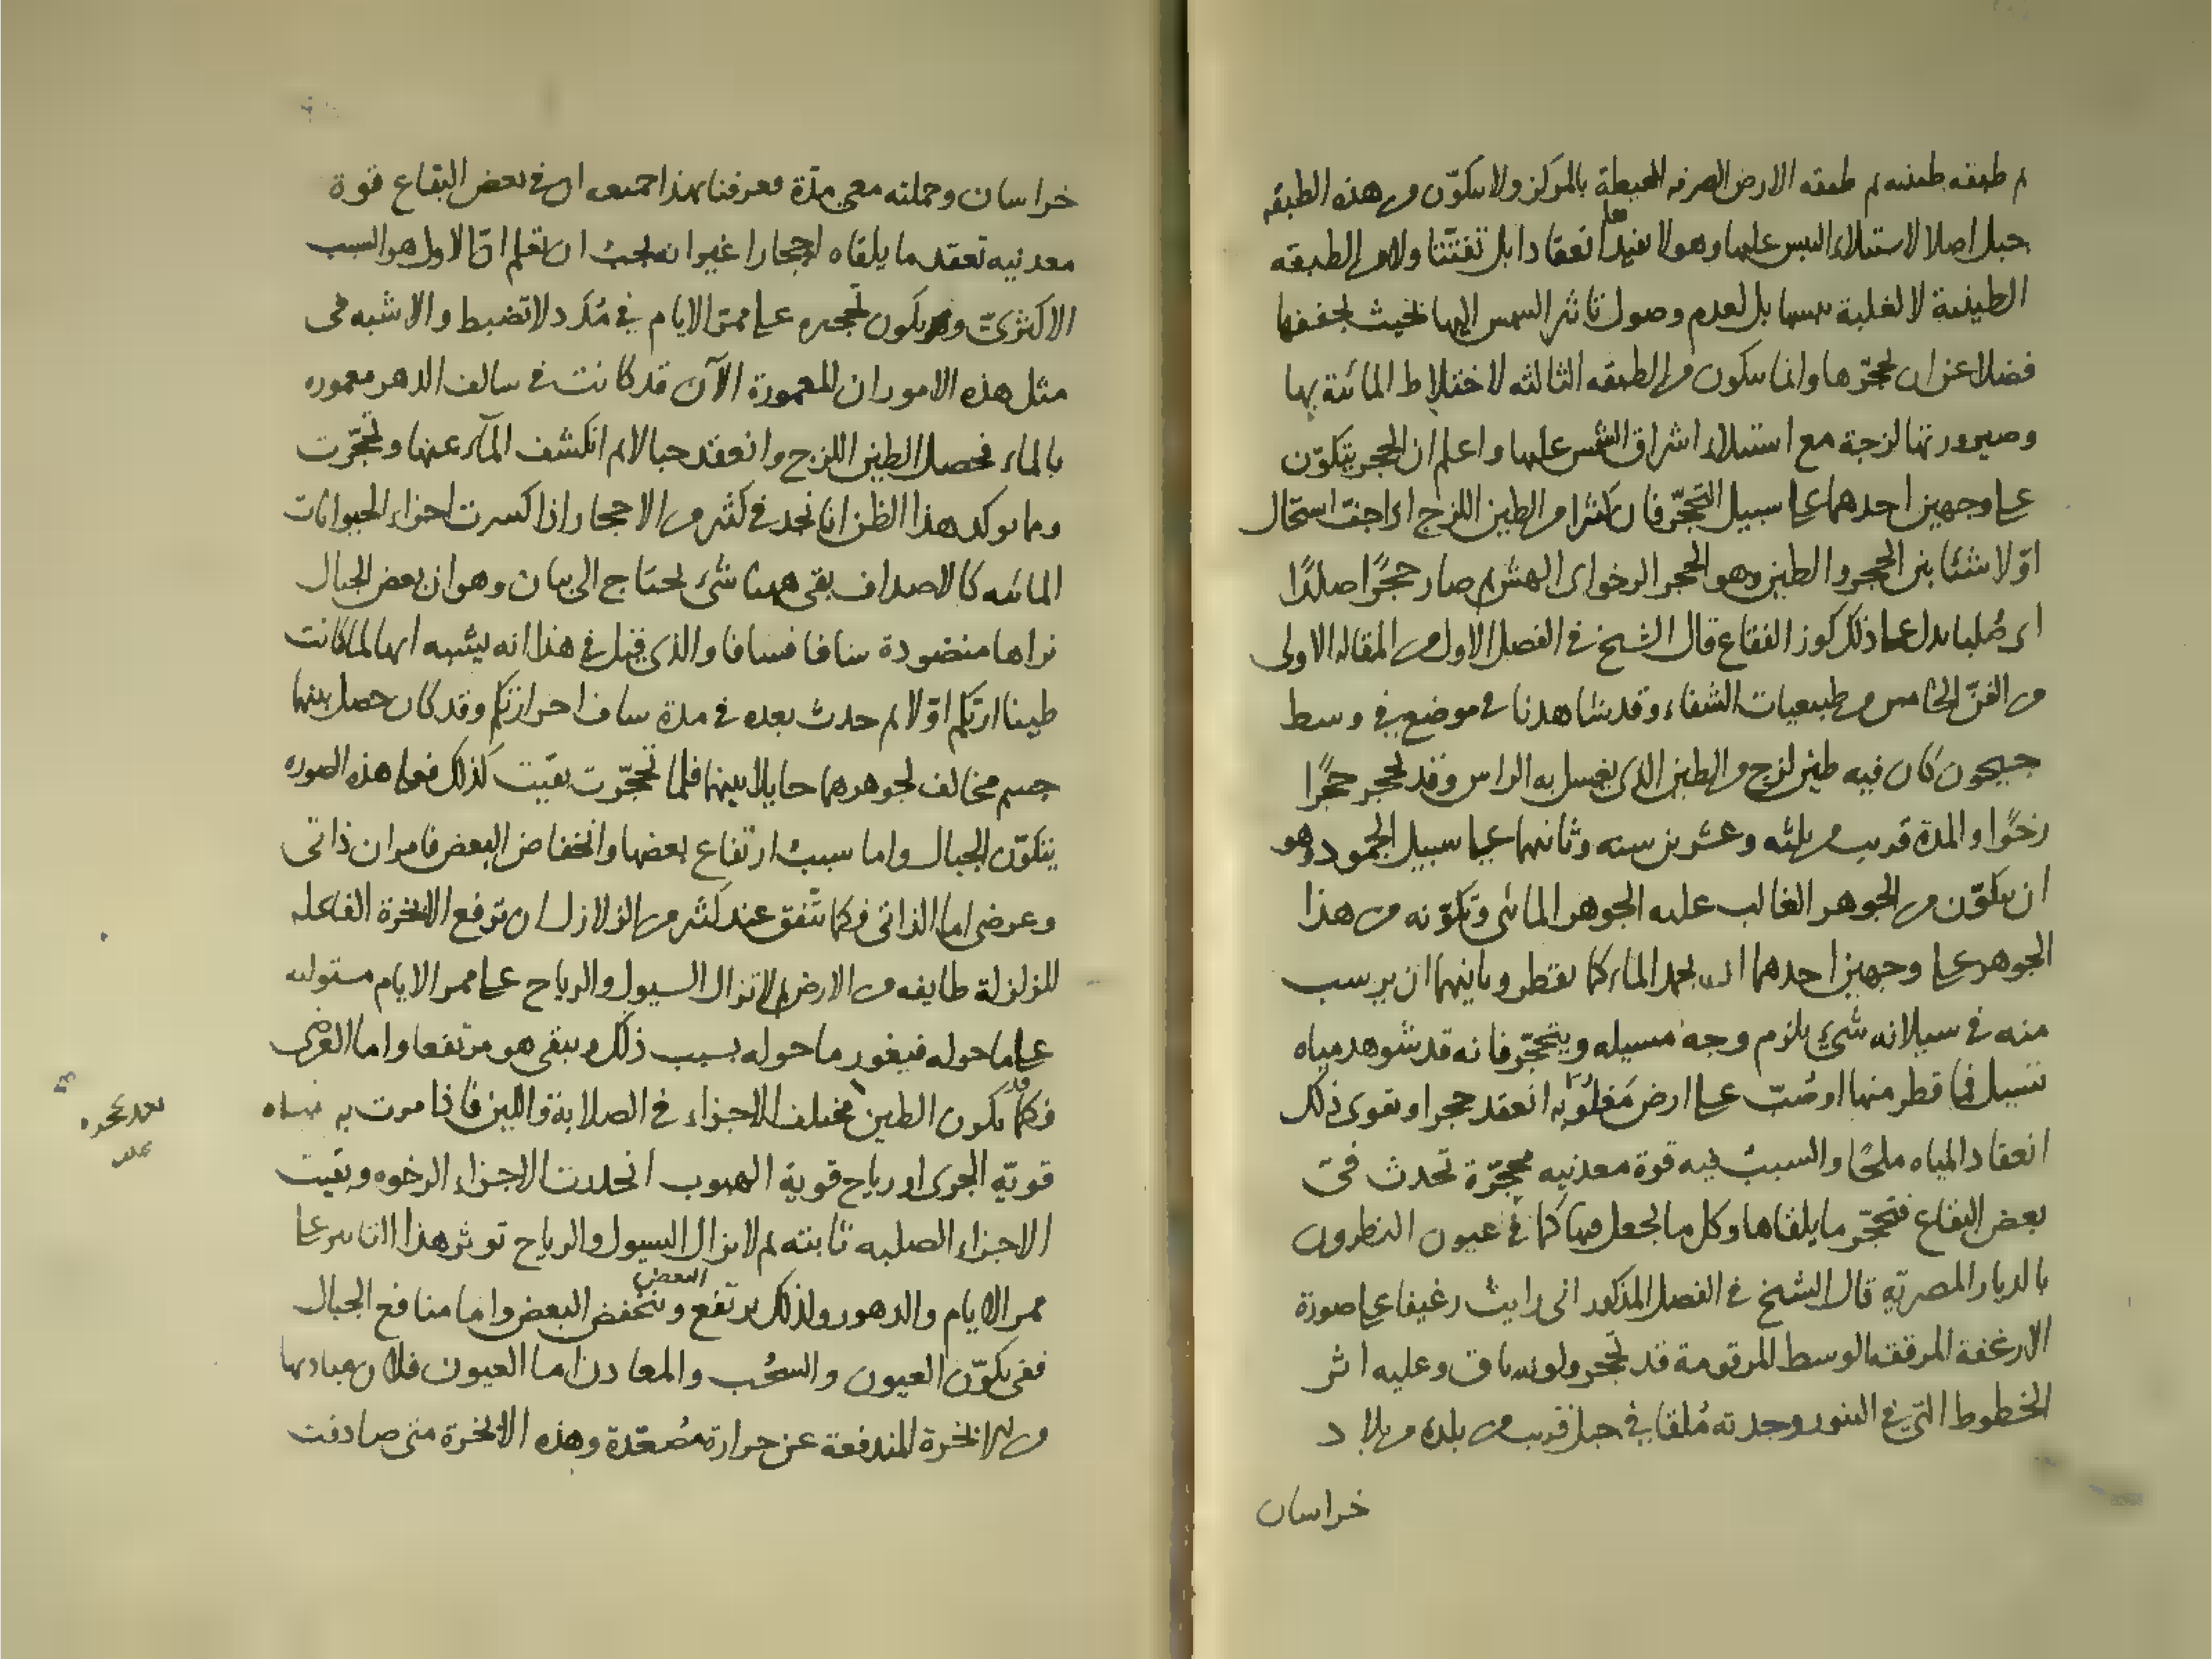 ثم طبقه طينيه ثم طبقه الارض الصرفه المحيطة بالمركز ولا يتكوّن من هذه الطبقه
جبل اصلا لاستيلاء اليبس عليها وهو لا يفيدها انعقادا بل تفتّتا ولا من الطبقه
الطينية لا لغلبة يبسها بل لعدم وصول تاثير الشمس اليها بحيث يجففها
فضلا عن ان يحجّرها وانما يتكون من الطبقه الثالثه لاختلاط المائية بها
وصيرورتها لزجة مع استيلاء اشراق الشمس عليها واعلم ان الحجر يتكوّن
على وجهين احدهما على سبيل التحجّر فان كثيرا من الطين اللزج اذا جفّ استحال
اوّلا شيئا بين الحجر والطين وهو الحجر الرخو اى الهش ثم صار حجرًا صلدًا
اى صُلبا يدل على ذلك كوز الفقاع قال الشيخ في الفصل الاول من المقاله الاولى
من الفنّ الخامس من طبيعيات الشفاء وقد شاهدنا في موضع في وسط
جيحون كان فيه طين لزج من الطين الذى يغسل به الراس وقد تحجر حجرًا
رخوًا والمدة قريب من ثلثه وعشرين سنه وثانيهما على سبيل الجمود وهو
ان يتكوّن من الجوهر الغالب عليه الجوهر المائى وتكوّنه من هذا
الجوهر على وجهين احدهما ان يجمد الماء كما يقطر وثانيهما ان يرسب
منه في سيلانه شيء يلزم وجه مسيله ويتحجّر فانه قد شوهد مياه
تسيل فما قطر منها او صُبّ على ارض معلومة انعقد حجرا ويقوى ذلك
انعقاد المياه ملحًا والسبب فيه قوة معدنيه محجّرة تحدث فى
بعض البقاع فتحجّر ما يلقاها وكل ما يجعل فيها كما في عيون النطرون
بالديار المصريّه قال الشيخ في الفصل المذكور انى رايت رغيفا على صورة
الارغفة المرققه الوسط المرقومة قد تحجر ولونه باق وعليه اثر
الخطوط التى في التنور وجدته مُلقا في جبل قريب من بلدة من بلاد
خراسان
خراسان وحملته معى مدّة فعرفنا بهذا اجمع ان في بعض البقاع قوة
معدنيه تعقد ما يلقاه احجارا غير انه يجب ان تعلم انّ الاول هو السبب
الاكثرىّ ويكون تحجره على ممرّ الايام في مُدَد لا تضبط والاشبه فى
مثل هذه الامور ان المعمورة الآن قد كانت في سالف الدهر مغموره
بالماء فحصل الطين اللزج وانعقد جبالا ثم انكشف المآء عنها وتحجّرت
ومما يوكد هذا الظن انا نجد في كثير من الاحجار اذا كسرت اجزاء الحيوانات
المائيه كالاصداف بقى ههنا شئ يحتاج الى بيان وهو ان بعض الجبال
نراها منضودة سافا فسافا والذى قيل في هذا انه يشبه انها لما كانت
طينا ارتكم اوّلا ثم حدث بعده في مدة ساف اخر ارتكم وقد كان حصل بينها
جسم مخالف لجوهرهما حايلا بينهما فلما تحجّرت بقيت كذلك فعلى هذه الصوره
يتكوّن الجبال واما سبب ارتفاع بعضها وانخفاض البعض فامران ذاتى
وعرضى اما الذاتى فكما تتّفق عند كثير من الزلازل ان ترفع الابخرة الفاعله
للزلزلة طايفه من الارض ثم لا تزال السيول والرياح على ممر الايام مستوليه
على ما حوله فيغور ما حوله بسبب ذلك ويبقى هو مرتفعا واما العرضى
فكما قد يكون الطين مختلف الاجزاء في الصلابة واللين فاذا مرت به مياه
قويّه الجرى او رياح قوية الهبوب انحدرت الاجزاء الرخوه وبقيت
الاجزاء الصلبه ثابته ثم لا يزال السيول والرياح توثر هذا التاثير على
ممر الايام والدهور ولذلك يرتفع البعض وينخفض البعض واما منافع الجبال
ففى تكوّن العيون والسحُب والمعادن اما العيون فلان مباديها
من الابخرة المندفعة عن حرارة مُصَعّدة وهذه الابخرة متى صادفت